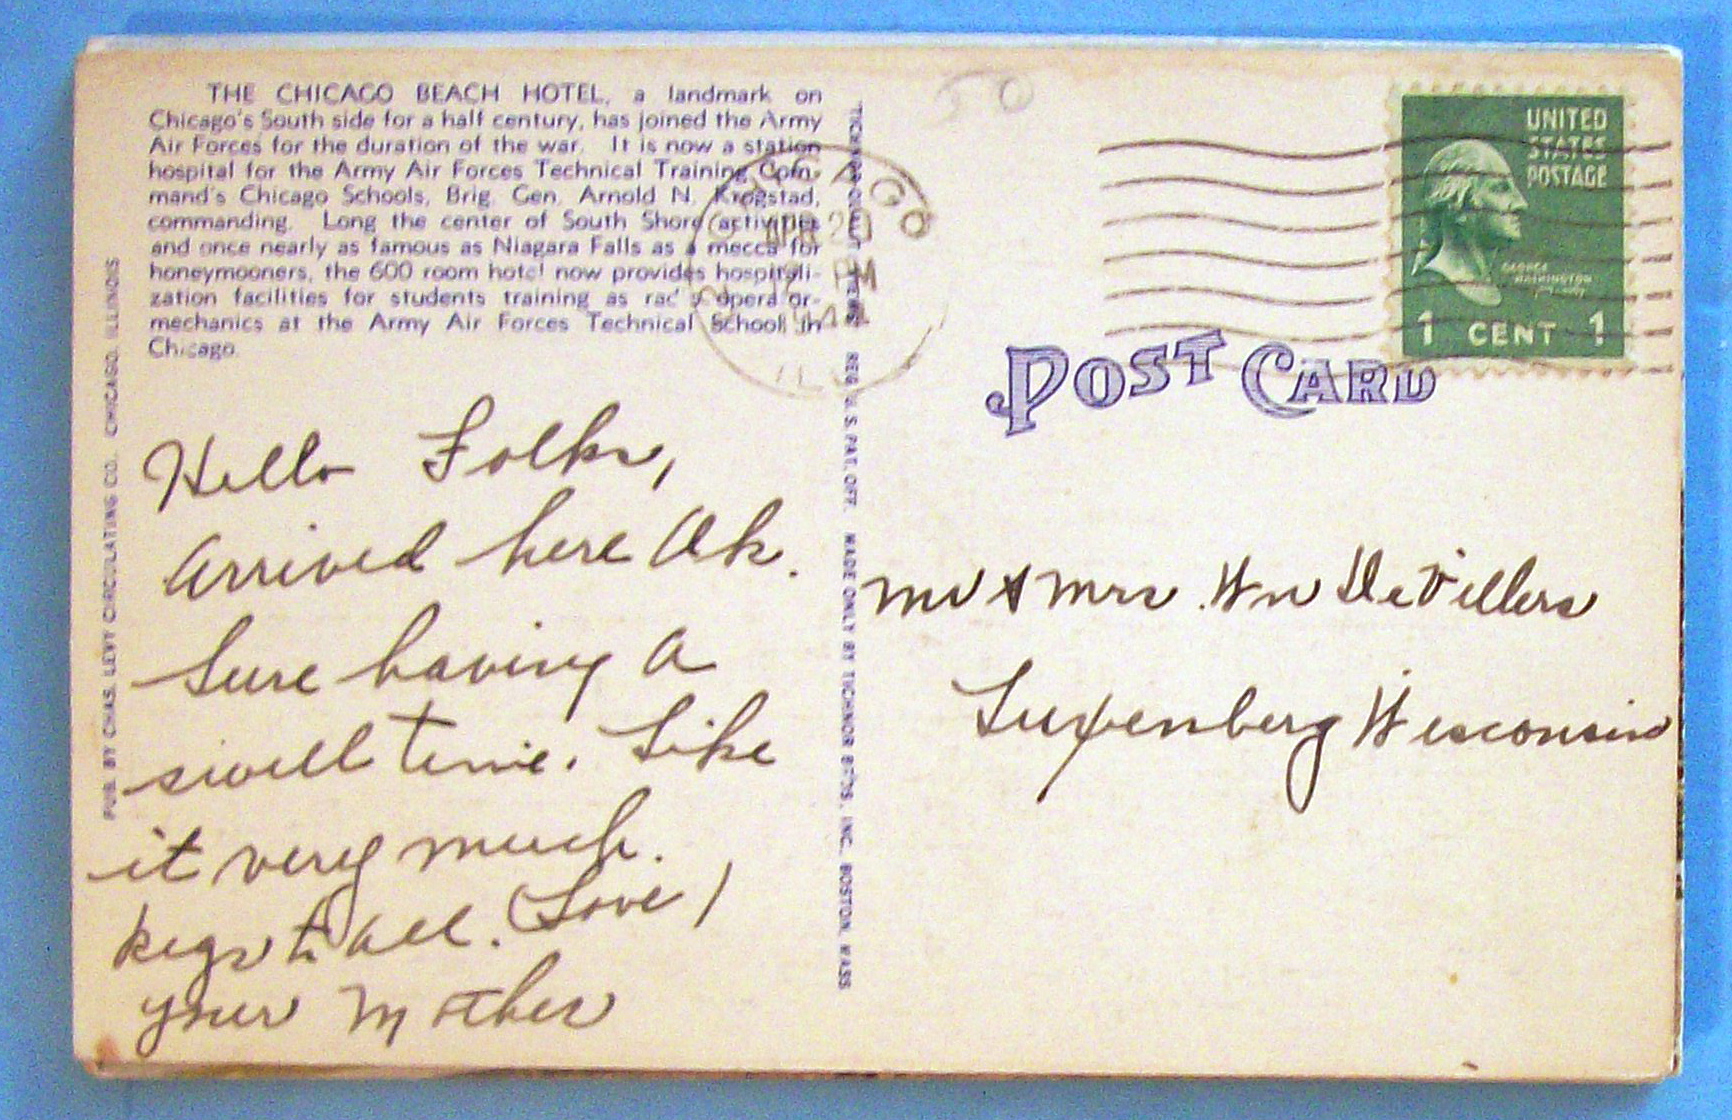 THE CHICAGO BEACH HOTEL, a landmark on
Chicago's South side for a half century, has joined the Army
Air Forces for the duration of the war. It is now a station
hospital for the Army Air Forces Technical Training Com-
mand's Chicago Schools, Brig. Gen. Arnold N. Krogstad,
commanding. Long the center of South Shore activities
and once nearly as famous as Niagara Falls as a mecca for
honeymooners, the 600 room hotel now provides hospitali-
zation facilities for students training as radio opera or-
mechanics at the Army Air Forces Technical School in
Chicago.
PUB. BY CHAS. LEVY CIRCULATING CO., CHICAGO, ILLINOIS
Hello Folks,
Arrived here Ok.
Sure having a
swell time. Like
it very much.
Regs to all. (Love)
your Mother
TICHNOR QUALITY VIEWS REG. U.S. PAT. OFF. MADE ONLY BY TICHNOR BROS. INC. BOSTON, MASS
50
CHICAGO
APR 20
PM
ILL
UNITED
STATES
POSTAGE
GEORGE
WASHINGTON
1 CENT 1
POST CARD
Mr & Mrs. Wm DeVillers
Luxenberg Wisconsin